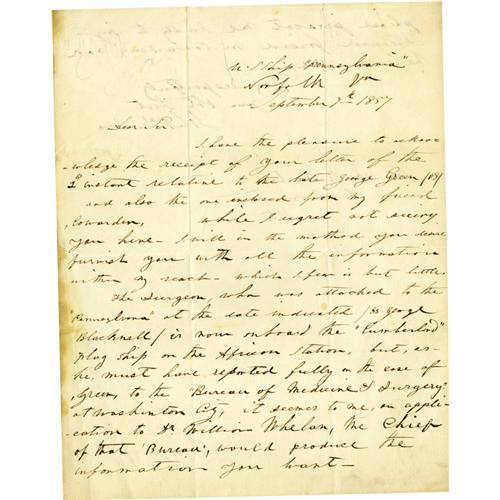 U.S. Ship Pennsylvania"
Norfolk Va
September 7th 1857
Dear Sir
I have the pleasure to acknow
-ledge the receipt of your letter of the
instant relative to the late George Green
and also the one enclosed from my friend
while I regret not seeing
you here - I will in the method you
furnish you with all the information
within my reach - which I fear is but little.
The Surgeon, who was attached to the
"Pennsylvania" at the date indicated / Dr George
Blacknall / is now onboard the "Cumberland"
Flag Ship on the African Station, but, as
he must have reported fully on the case of
Green, to the "Bureau of Medicine & Surgery"
at Washington City, it seems to me, an appli-
-cation to Dr William Whelan, the Chief
of that 'Bureau', would produce the
information you want -